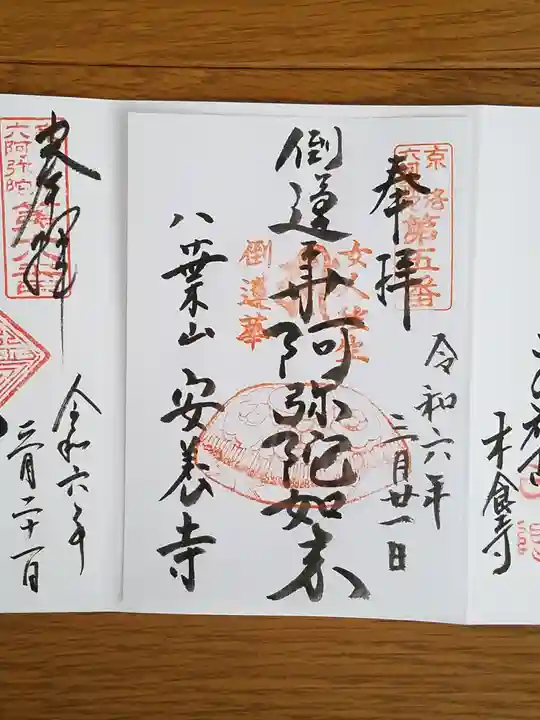 木食寺
京洛
六阿弥陀
第五番
奉拝
令和六年
三月廿一日
女人
倒蓮華
倒蓮華阿弥陀如来
八葉山
安養寺
奉拝
六阿弥陀
令和六年
三月二十一日